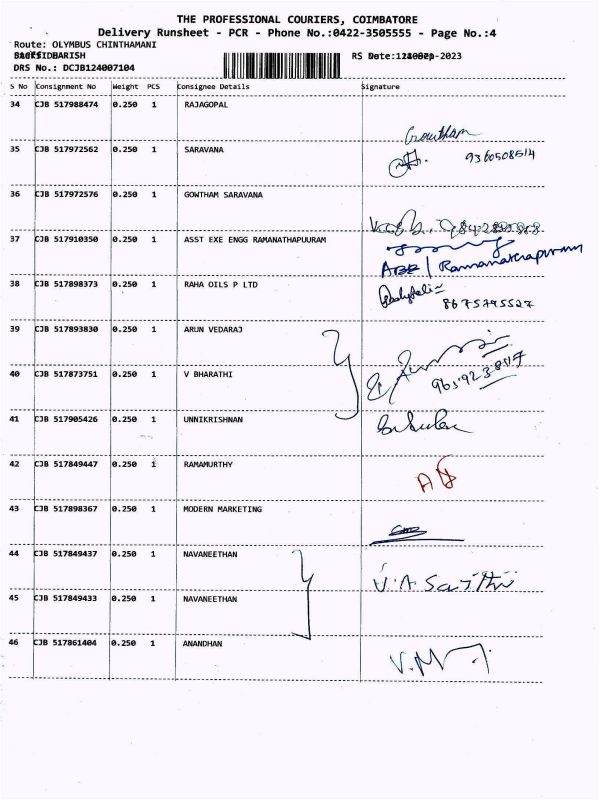 THE PROFESSIONAL COURIERS, COIMBATORE
Delivery Runsheet - PCR - Phone No.:0422-3505555 - Page No.:4
Route: OLYMBUS CHINTHAMANI
RS
DRS No.: DCJB124007104
S No Consignment No Weight PCS Consignee Details Signature
34 CJB 517988474 0.250 1 RAJAGOPAL Gowtham
35 CJB 517972562 0.250 1 SARAVANA 9360508514
36 CJB 517972576 0.250 1 GOWTHAM SARAVANA
37 CJB 517910350 0.250 1 ASST EXE ENGG RAMANATHAPUURAM
AEE | Ramanathapuram
38 CJB 517898373 0.250 1 RAHA OILS P LTD
8675795527
39 CJB 517893830 0.250 1 ARUN VEDARAJ
40 CJB 517873751 0.250 1 V BHARATHI
41 CJB 517905426 0.250 1 UNNIKRISHNAN
42 CJB 517849447 0.250 1 RAMAMURTHY
43 CJB 517898367 0.250 1 MODERN MARKETING
44 CJB 517849437 0.250 1 NAVANEETHAN
45 CJB 517849433 0.250 1 NAVANEETHAN
46 CJB 517861404 0.250 1 ANANDHAN